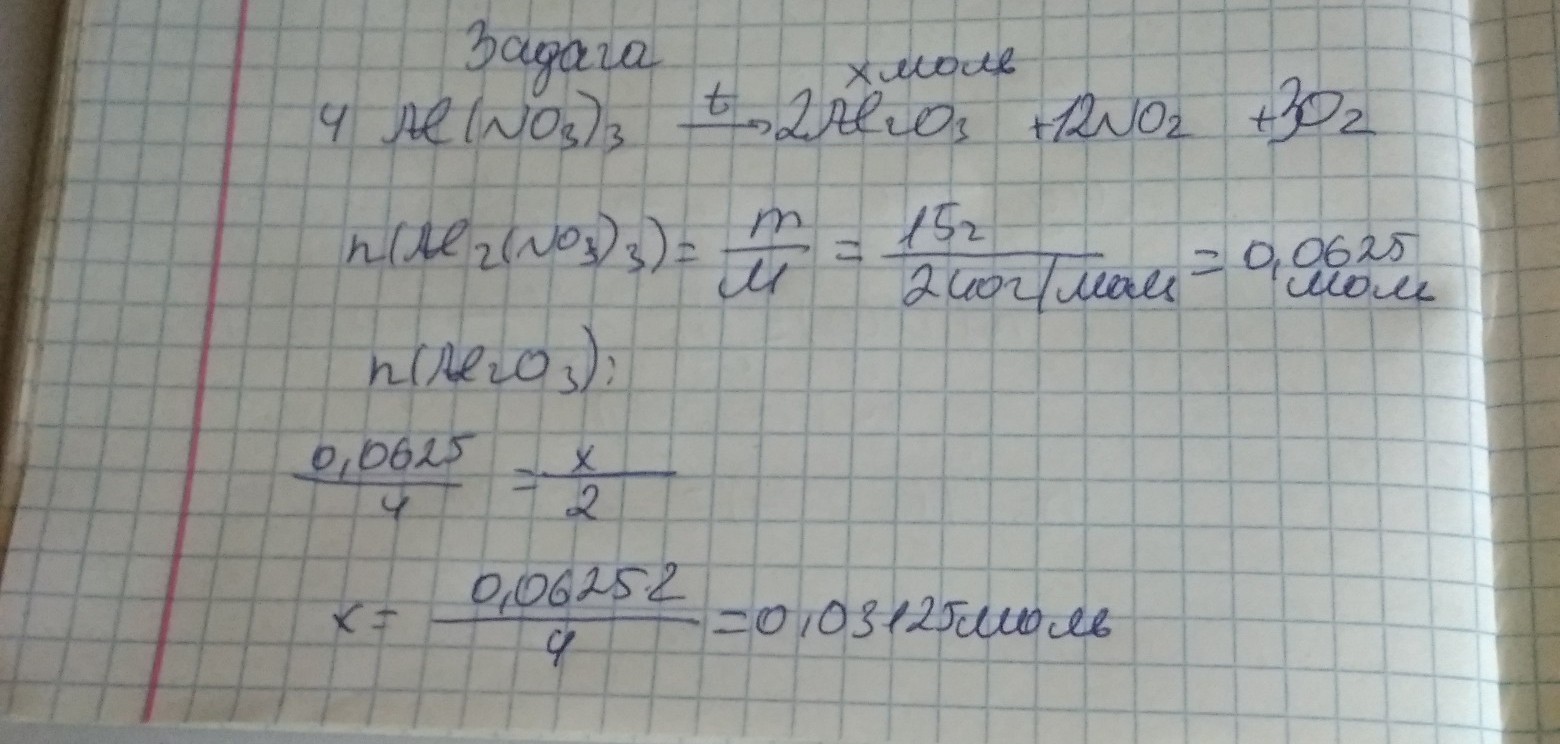 Задача
x моль
4 Al(NO3)3 t→ 2Al2O3 + 12NO2 + 3O2
n(Al2(NO3)3) = m/M = 15г/240г/моль = 0,0625 моль
n(Al2O3):
0,0625/4 = x/2
x = 0,0625·2/4 = 0,03125 моль